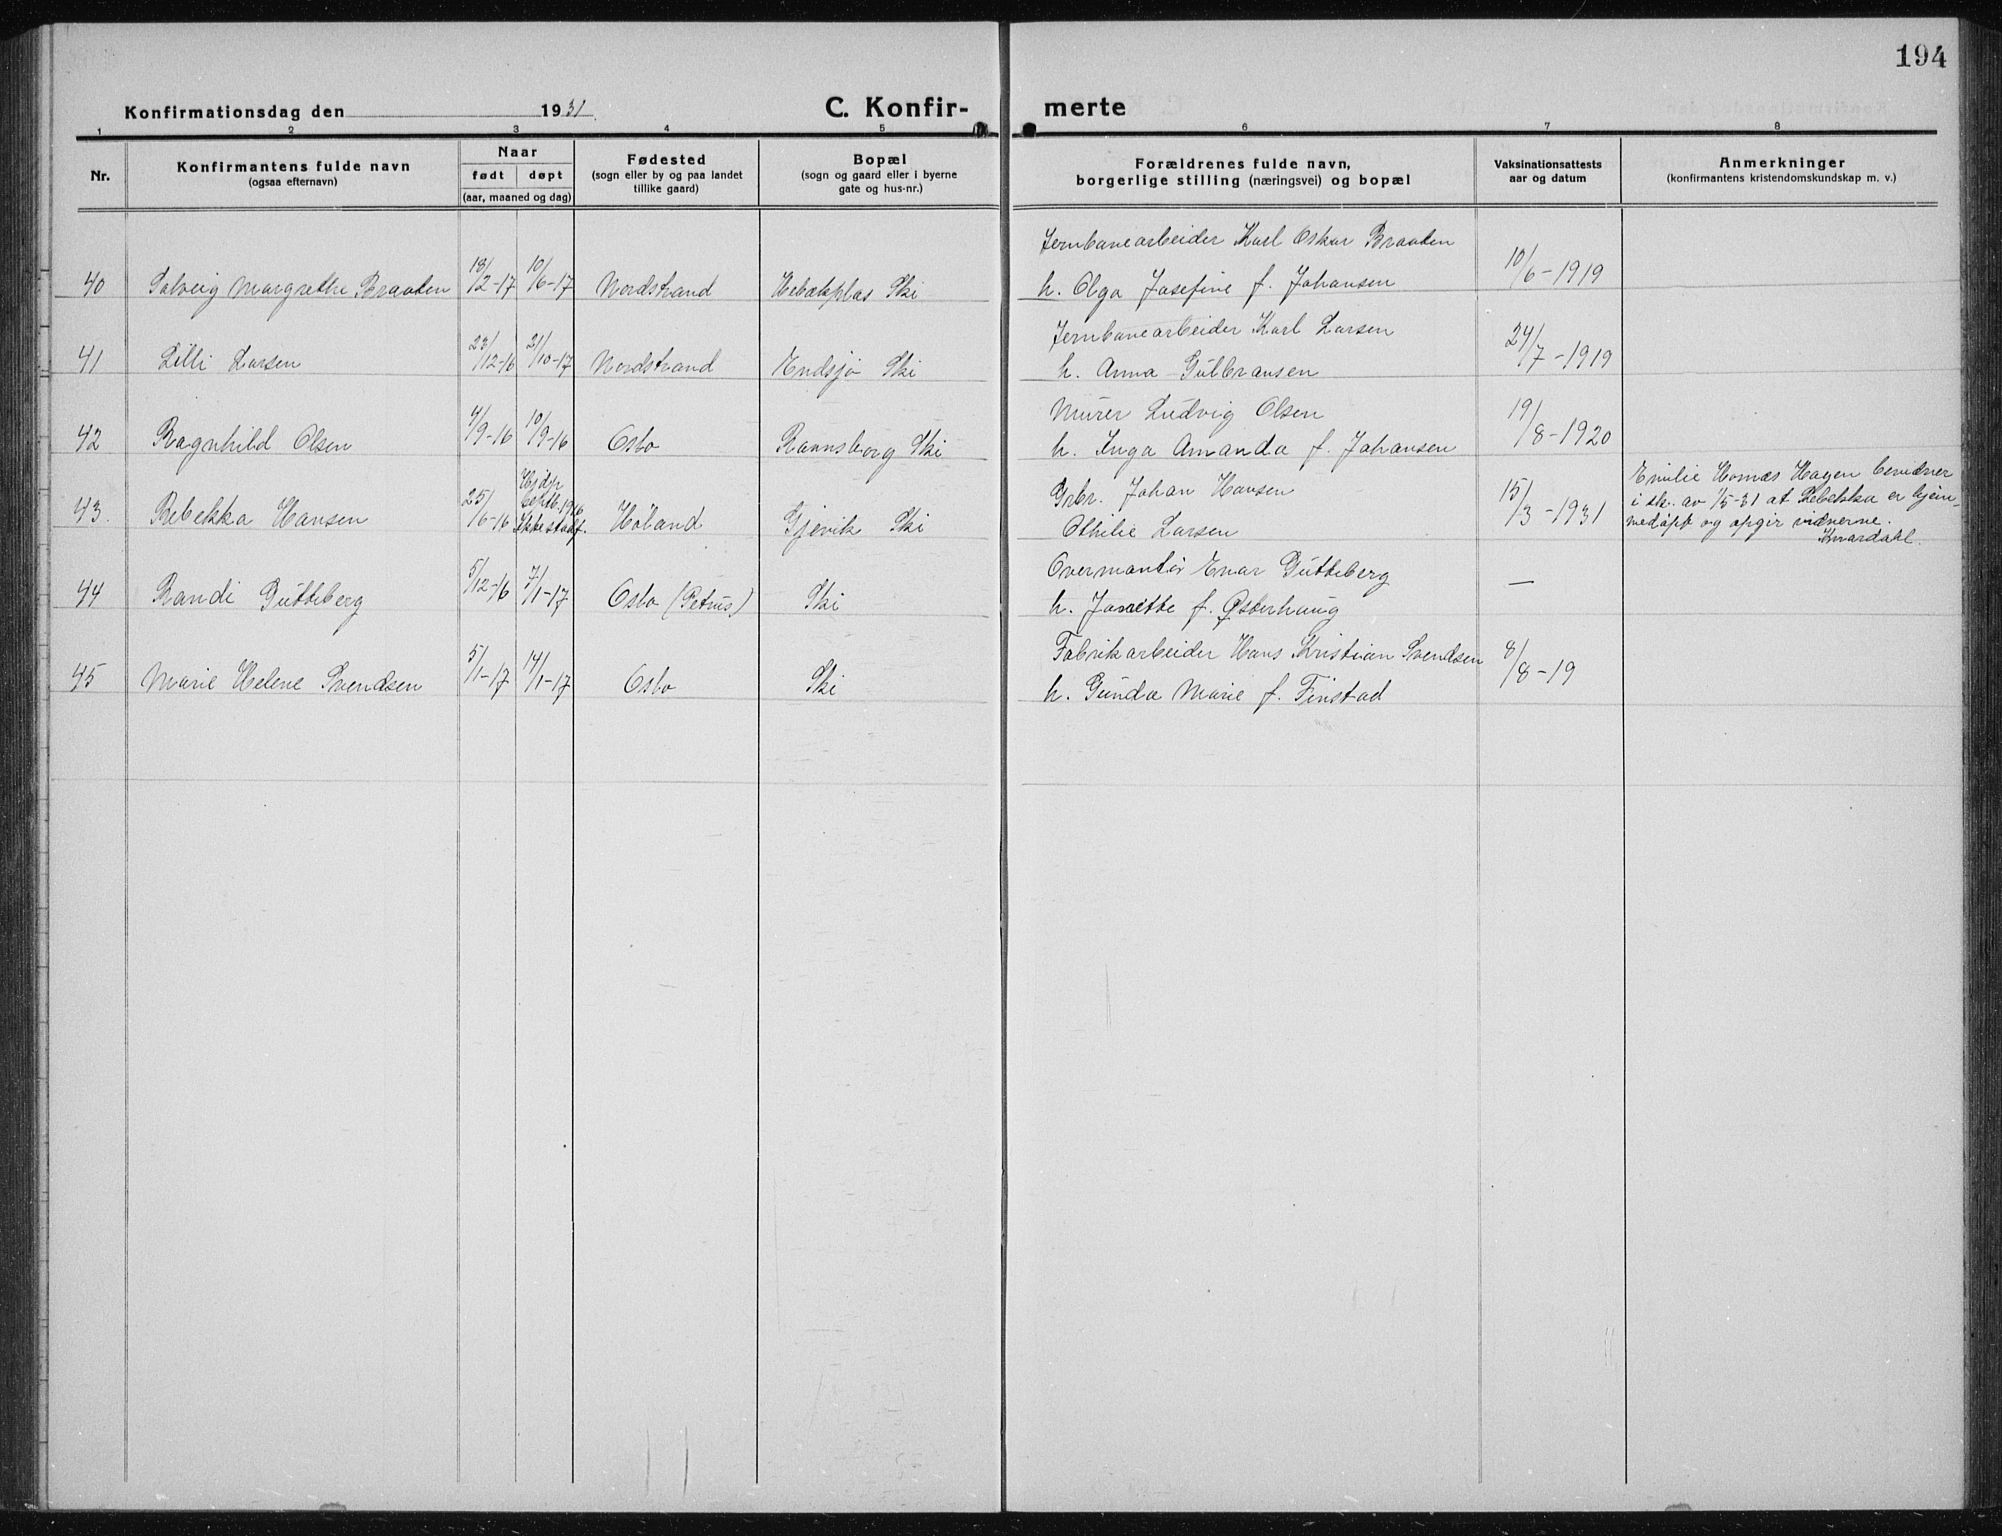 194
Konfirmationsdag den 1931.
C. Konfir- merte
1 2 3 4 5 6 7 8
Nr.
Konfirmantens fulde navn
(ogsaa efternavn)
Naar
født døpt
(aar, maaned og dag)
Fødested
(sogn eller by og paa landet
tillike gaard)
Bopæl
(sogn og gaard eller i byerne
gate og hus-nr.)
Forældrenes fulde navn,
borgerlige stilling (næringsvei) og bopæl
Vaksinationsattests
aar og datum
Anmerkninger
(konfirmantens kristendomskundskap m. v.)
Jernbanearbeider Karl Oskar Braaten
40 Solveig Margrethe Braaten 18/2-17 10/6-17 Nordstrand Ski h. Olga Josefine f. Johansen 10/6-1919
Jernbanearbeider Karl Larsen
41 Lilli Larsen 23/12-16 21/10-17 Nordstrand Endsjø Ski h. Anna Gulbransen 24/7-1919
Murer Ludvig Olsen
42 Ragnhild Olsen 4/9-16 10/9-16 Oslo Ravnsborg Ski h. Inga Amanda f. Johansen 19/8-1920
Hjdp
Septb. 1916
Ikke stadf.
Gbr. Johan Hansen
43. Rebekka Hansen 25/6-16 Høland Gjevik Ski Othilie Larsen 15/3-1931
Emilie Hornæs Hagen bevidner
i sk. av 1/5-31 at Rebekka er hjem-
medøpt og opgir vidnerne.
Kvardahl.
Overmontør Einar Gutteberg
44 Randi Gutteberg 5/12-16 7/1-17 Oslo (Petrus) Ski h. Janette f. Østerhaug —
Fabrikarbeider Hans Kristian Svendsen
45 Marie Helene Svendsen 5/1-17 14/1-17 Oslo Ski h. Gunda Marie f. Finstad 8/8-19